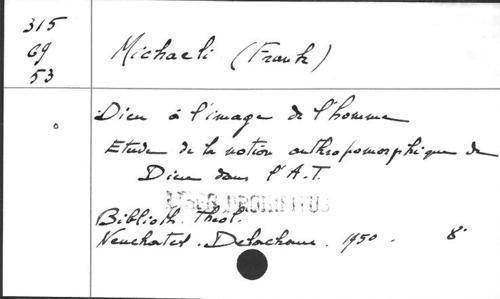 315
69
53
Michaeli (Frank)
Dieu à l'image de l'homme
Etude de la notion anthropomorphique de
Dieu dans l'A.T.
Biblioth. Théol.
Neuchatel. Delachaux. 1950. 8°